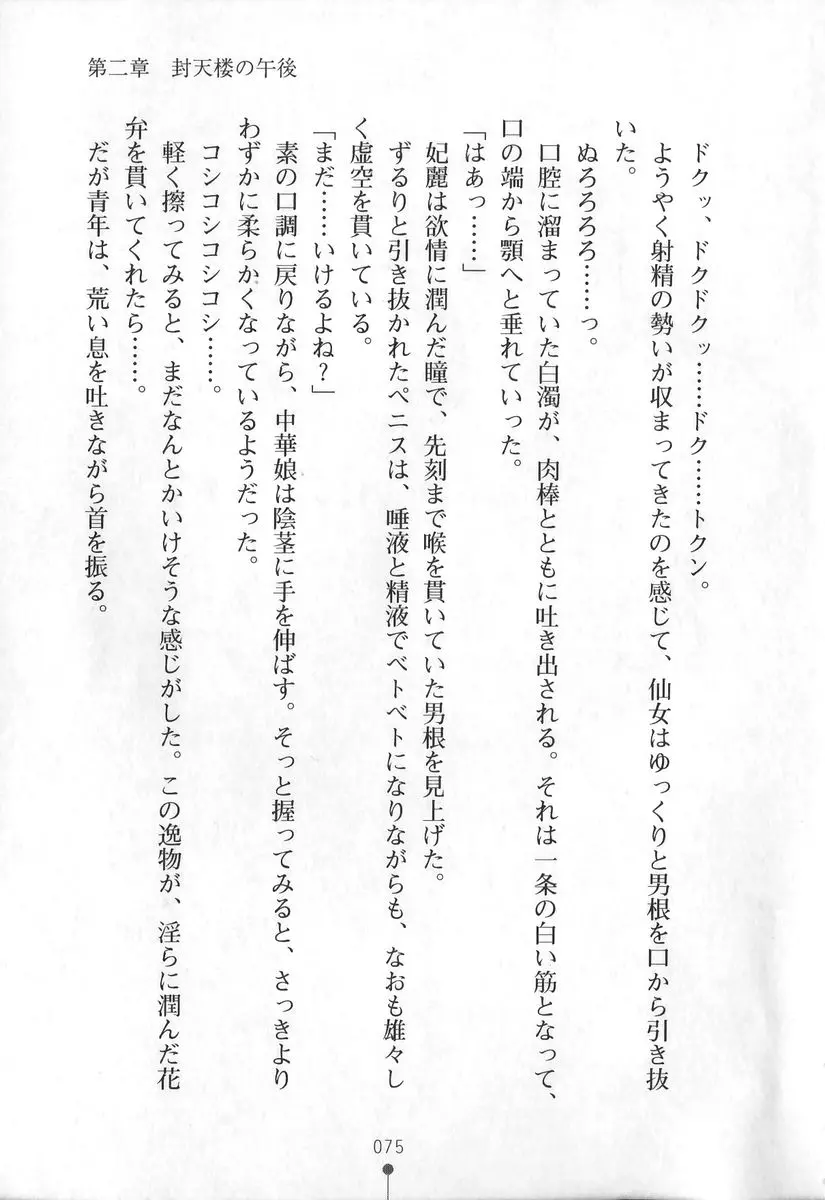 第二章　封天楼の午後
　ドクッ、ドクドクッ……ドク……トクン。
　ようやく射精の勢いが収まってきたのを感じて、仙女はゆっくりと男根を口から引き抜
いた。
　ぬろろろろ……っ。
　口腔に溜まっていた白濁が、肉棒とともに吐き出される。それは一条の白い筋となって、
口の端から顎へと垂れていった。
「はあっ……」
　妃麗は欲情に潤んだ瞳で、先刻まで喉を貫いていた男根を見上げた。
　ずるりと引き抜かれたペニスは、唾液と精液でベトベトになりながらも、なおも雄々し
く虚空を貫いている。
「まだ……いけるよね？」
　素の口調に戻りながら、中華娘は陰茎に手を伸ばす。そっと握ってみると、さっきより
わずかに柔らかくなっているようだった。
　コシコシコシコシ……。
　軽く擦ってみると、まだなんとかいけそうな感じがした。この逸物が、淫らに潤んだ花
弁を貫いてくれたら……。
　だが青年は、荒い息を吐きながら首を振る。
075